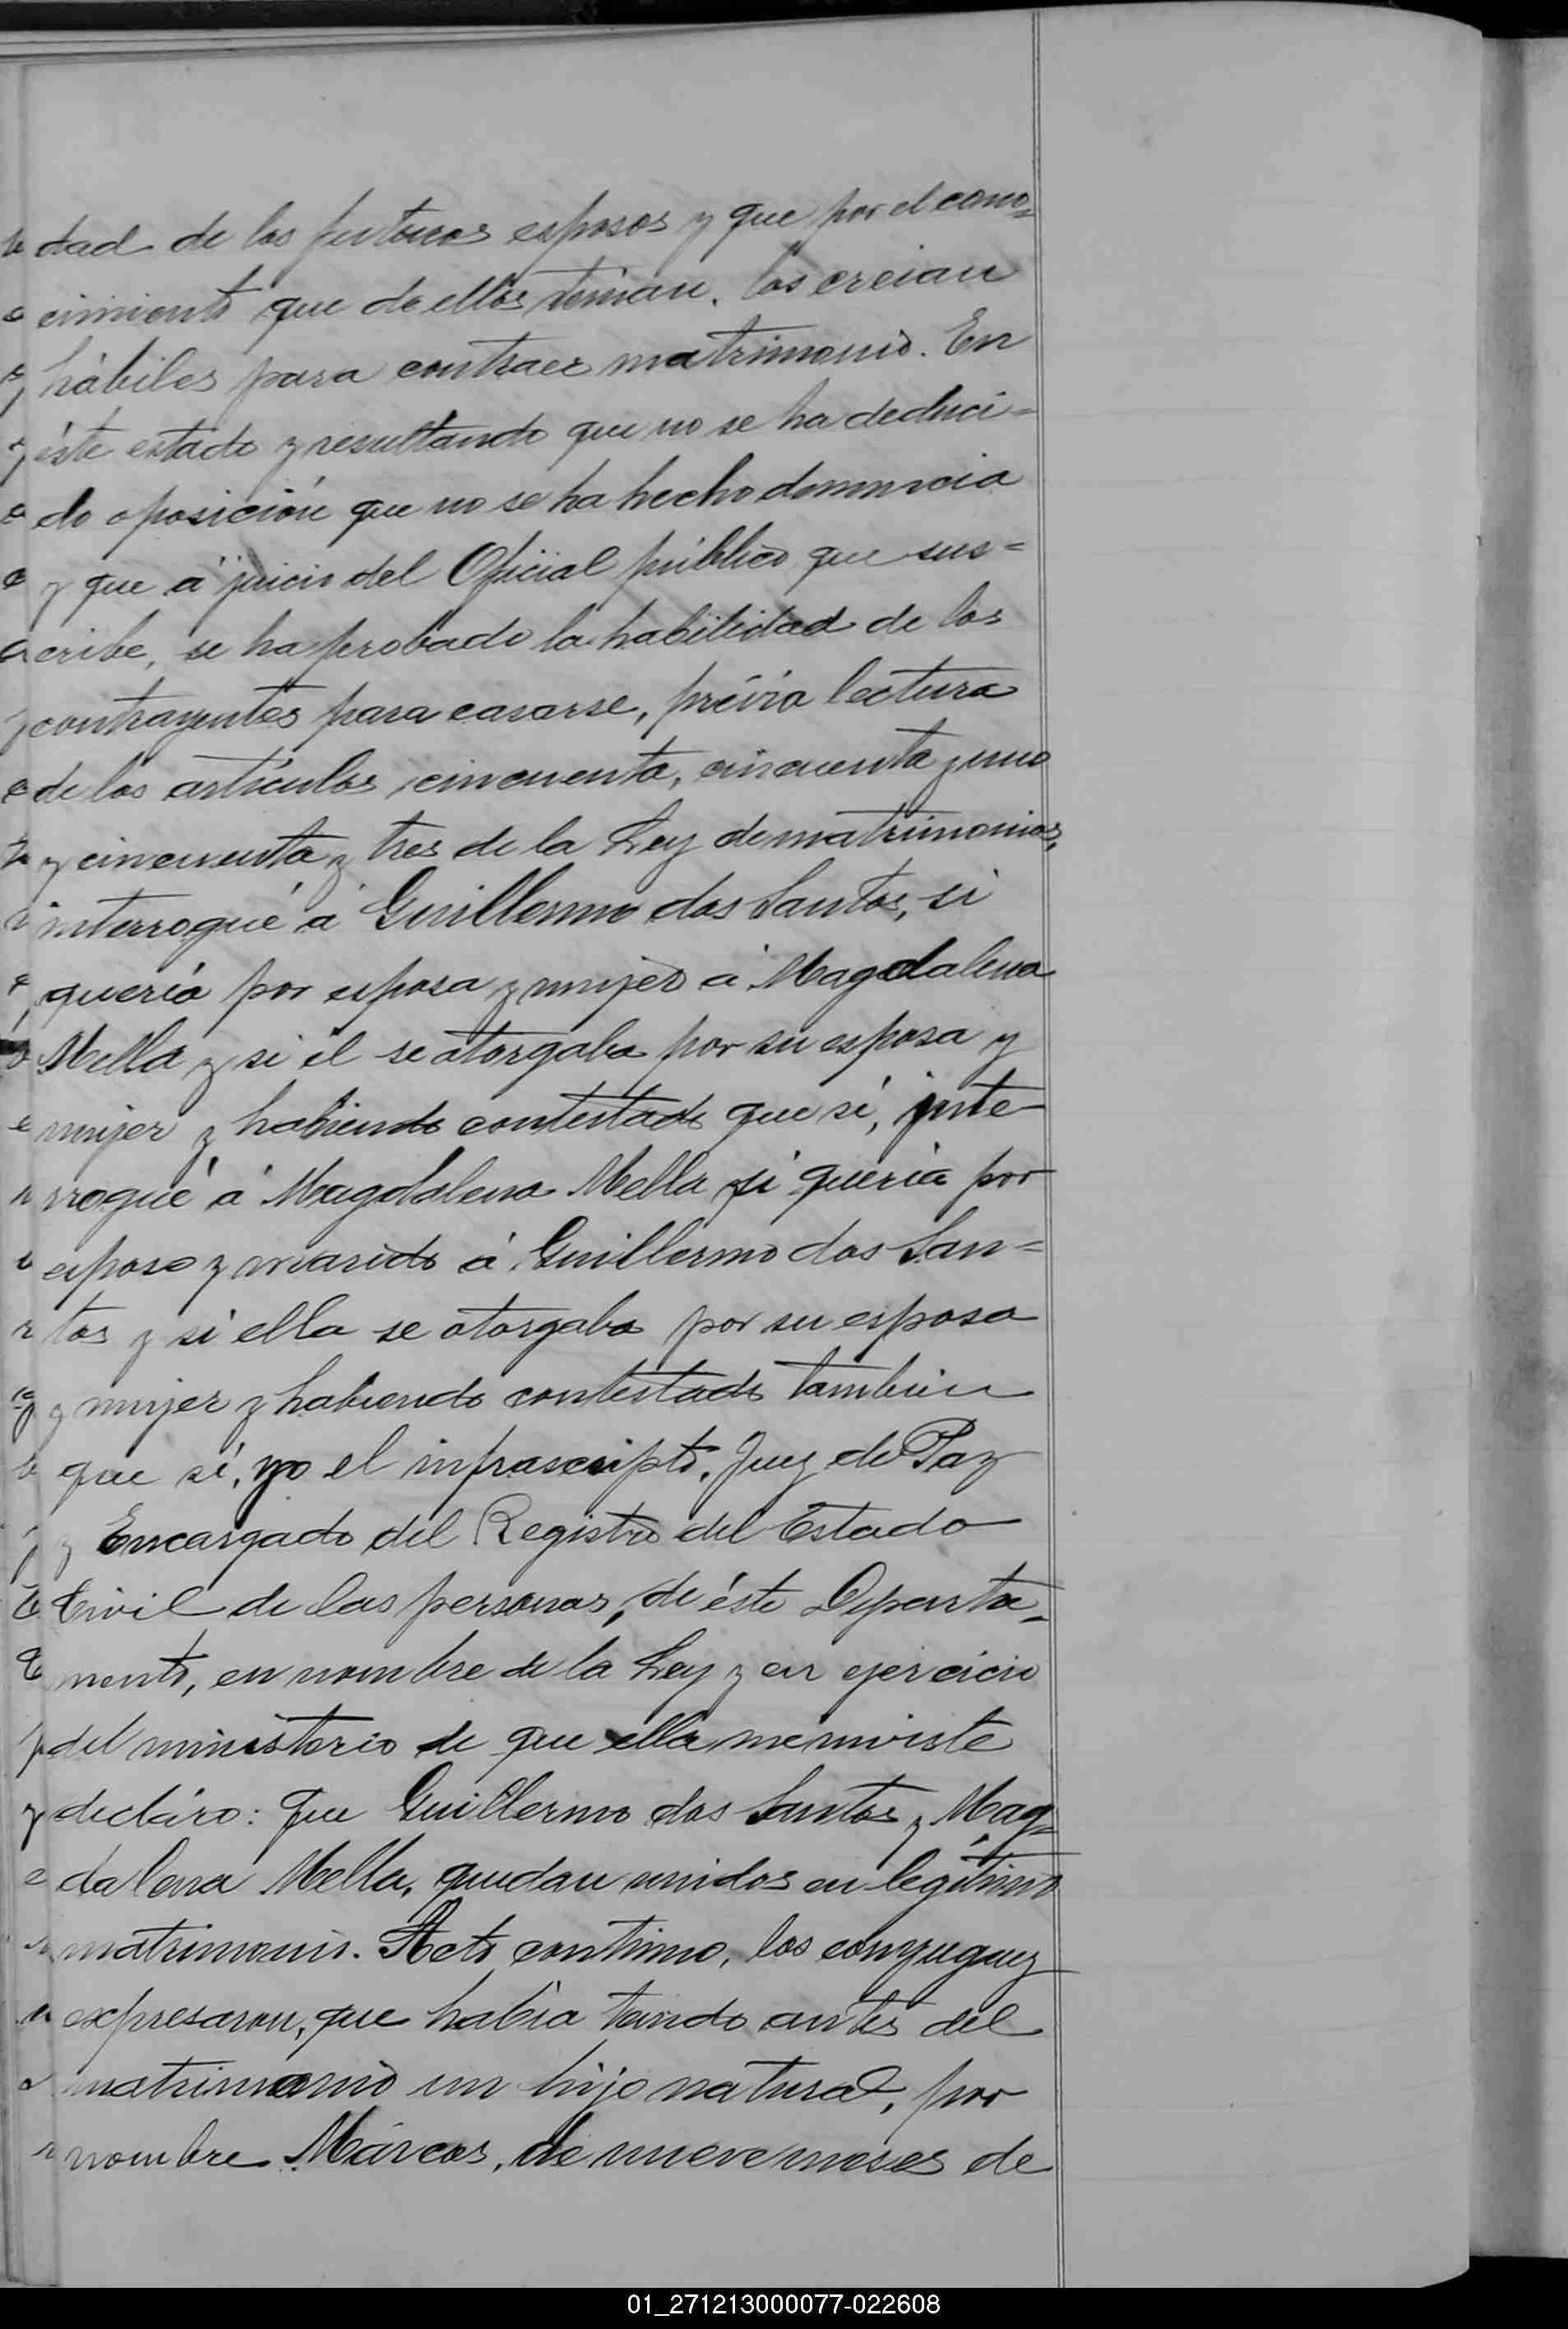 dad de los futuros esposos y que por el cono=
cimiento que de ellos tenian, los creian
hábiles para contraer matrimonio. En
éste estado y resultando que no se ha deduci=
do oposición que no se ha hecho denuncia
y que á juicio del Oficial público que sus=
cribe, se ha probado la habilidad de los
contrayentes para casarse, prévia lectura
de los artículos, cincuenta, cincuenta y uno
y cincuenta y tres de la Ley de matrimonios,
interrogué á Guillermo dos Santos, si
quería por esposa y mujer á Magdalena
Mella y si él se otorgaba por su esposa y
mujer y habiendo contestado que sí, inte
rrogué á Magdalena Mella si quería por
esposo y marido á Guillermo dos San=
tos y si ella se otorgaba por su esposa
y mujer y habiendo contestado tambien
que sí, yo el infrascripto, Juez de Paz
y Encargado del Registro del Estado
Civil de las personas, de éste Departa=
mento, en nombre de la Ley y en ejercicio
del ministerio de que ella me inviste
declaro: que Guillermo dos Santos y Mag=
dalena Mella, quedan unidos en legítimo
matrimonio. Acto continuo, los conyuguez
expresaron, que había tenido antes del
matrimonio un hijo natural, por
nombre Márcos, de nueve meses de
01_271213000077-022608